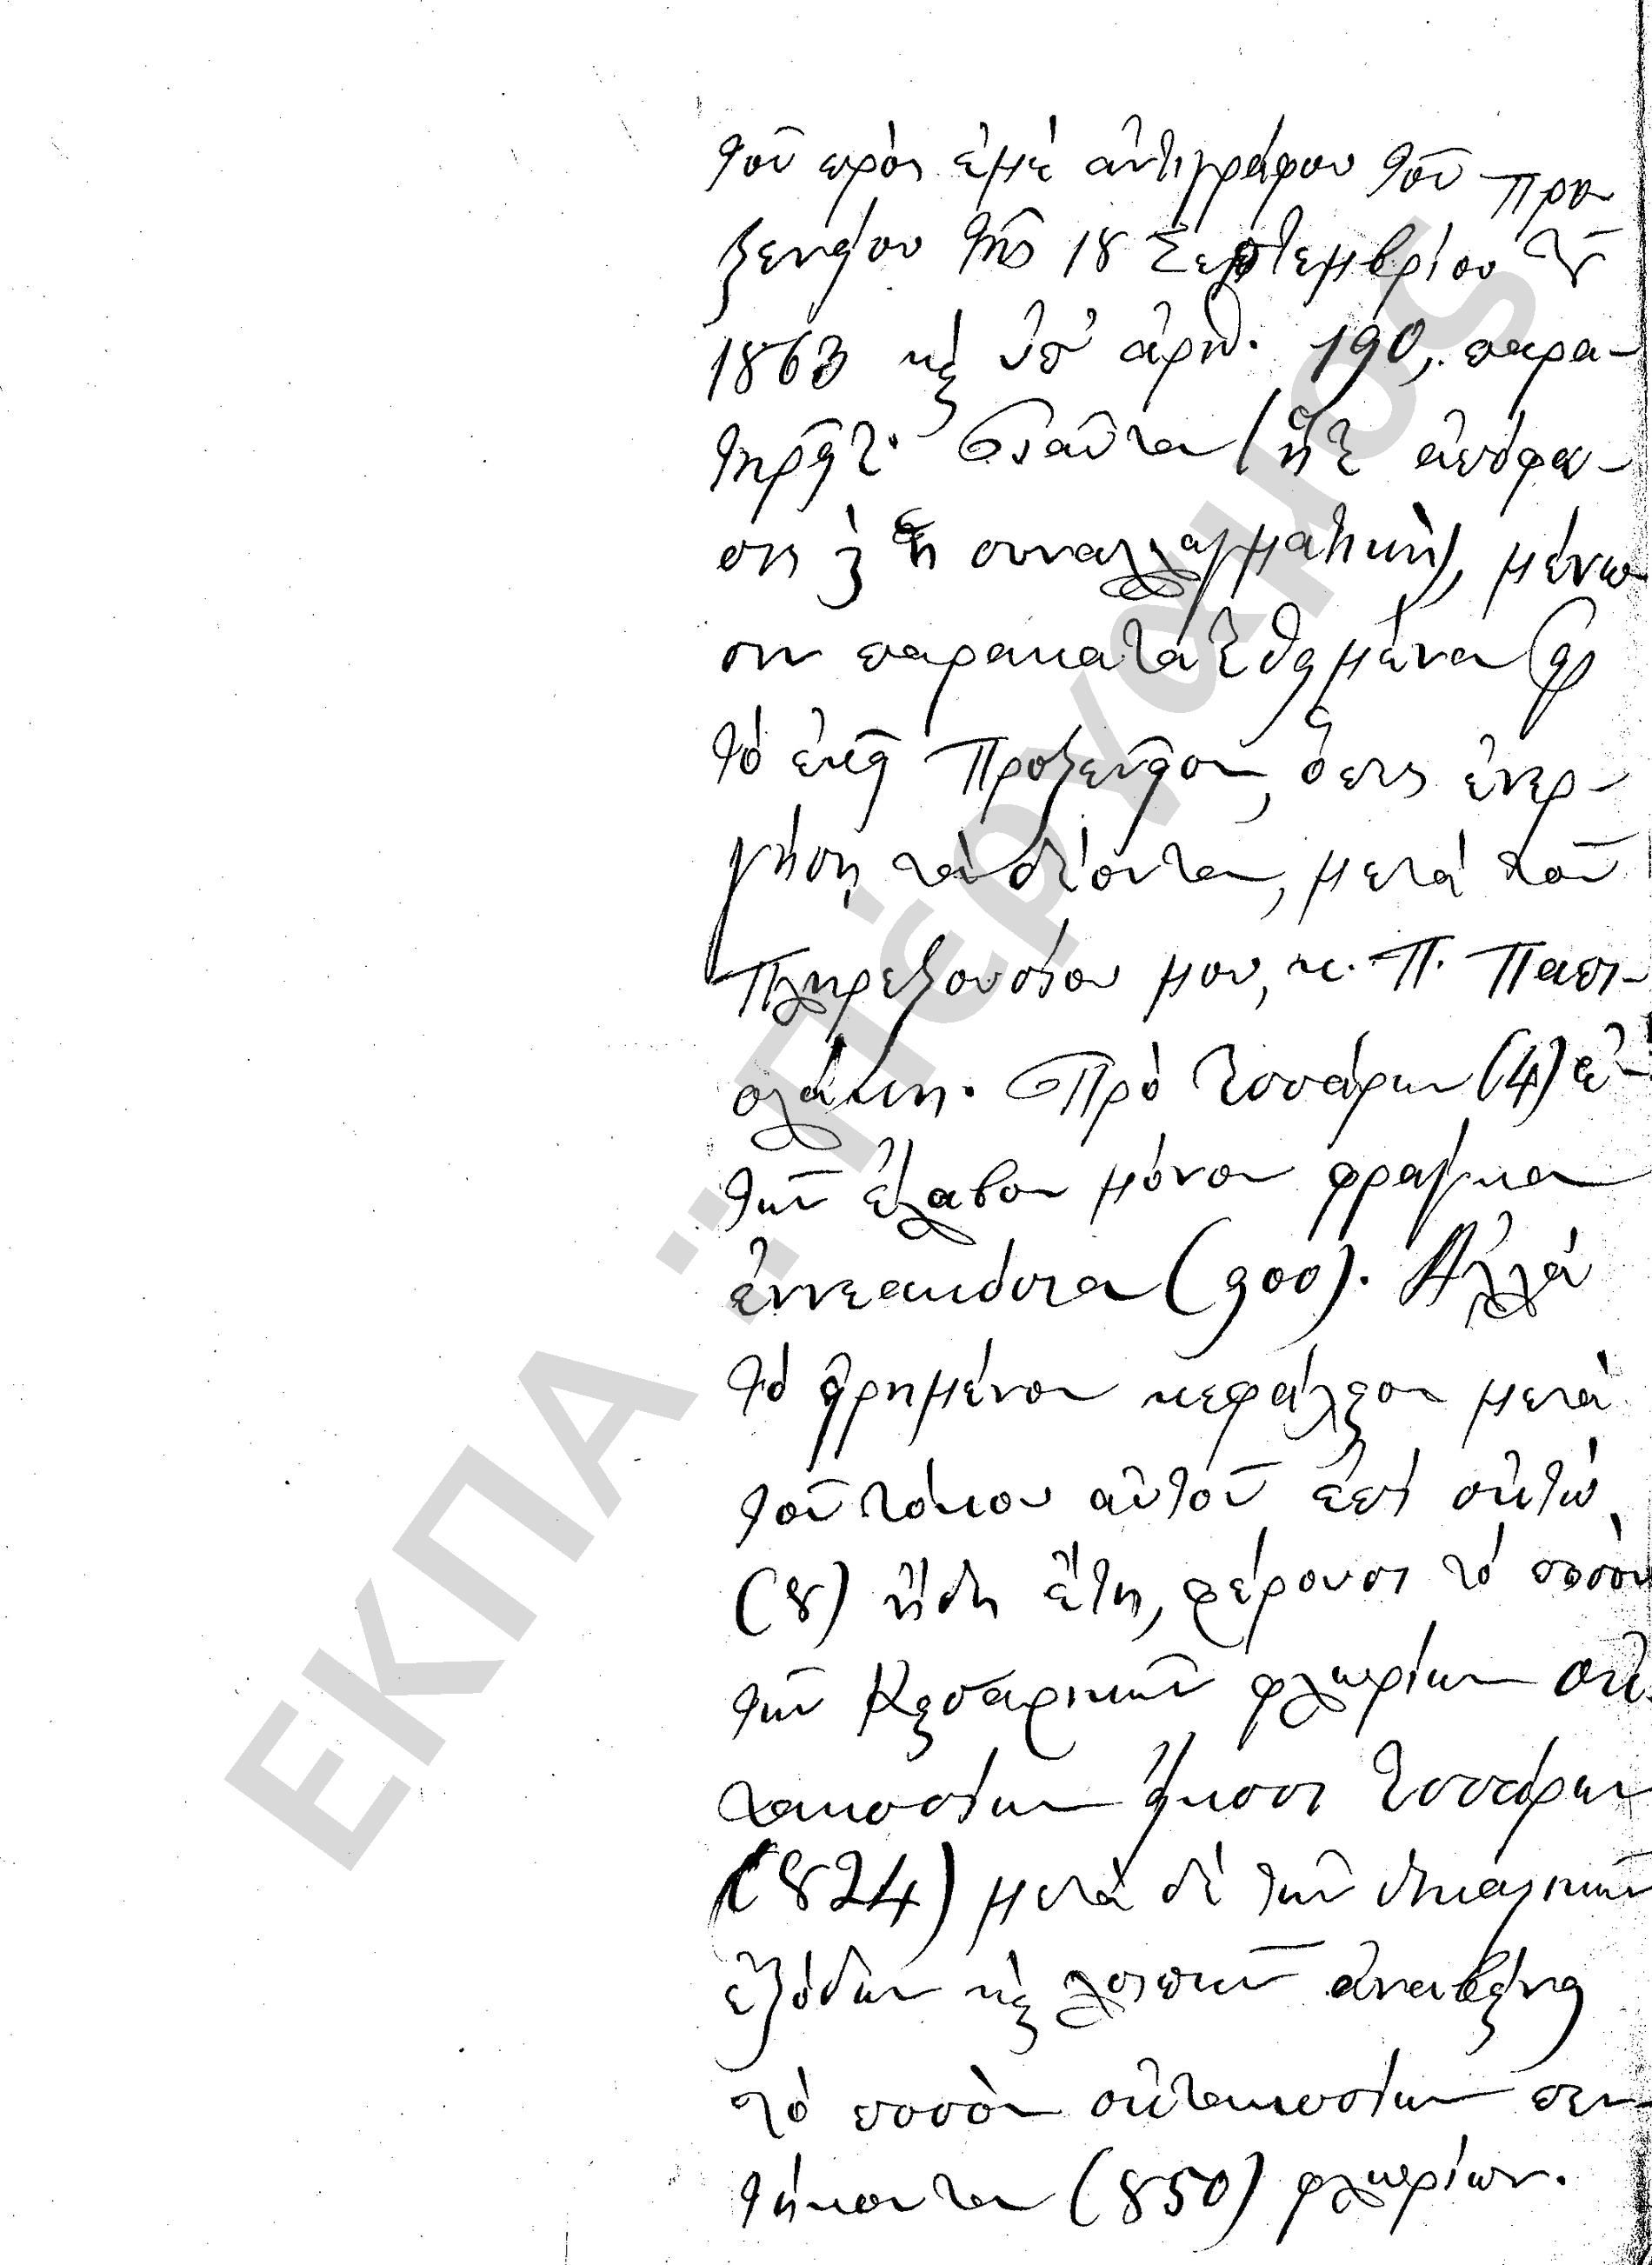 τοῦ πρὸς ἐμὲ ἀντιγράφου τοῦ Προ
ξενείου τῆς 18 Σεπτεμβρίου τοῦ
1863 καὶ ὑπ' ἀριθ. 190, παρα-
τηρεῖτε· Ταῦτα (ἥτε ἀπόφα-
σις καὶ ἡ συναλλαγματική), μένου
σιν παρακατατεθειμένα εἰς
τὸ ἐκεῖ Προξενεῖον, ὅπερ ἐνερ-
γήσῃ τὰ δέοντα, μετὰ τοῦ
Πληρεξουσίου μου, κ. Π. Πασπ-
αλάκη. Πρὸ τεσσάρων (4) ἐ-
τῶν ἔλαβον μόνον φράγκα
ἐννεακόσια (900). Ἀλλὰ
τὸ εἰρημένον κεφάλαιον μετὰ
τοῦ τόκου αὐτοῦ ἐπὶ ὀκτὼ
(8) ἤδη ἔτη, φέρουσι τὸ ποσὸν
τῶν Καισαρικῶν φλωρίων ὀκ
τακοσίων εἴκοσι τεσσάρων
(824) μετὰ δὲ τῶν δικαστικῶν
ἐξόδων καὶ λοιπῶν ἀναβαίνει
τὸ ποσὸν ὀκτακοσίων πεν-
τήκοντα (850) φλωρίων.
ΕΚΠΑ : Πέργαμος